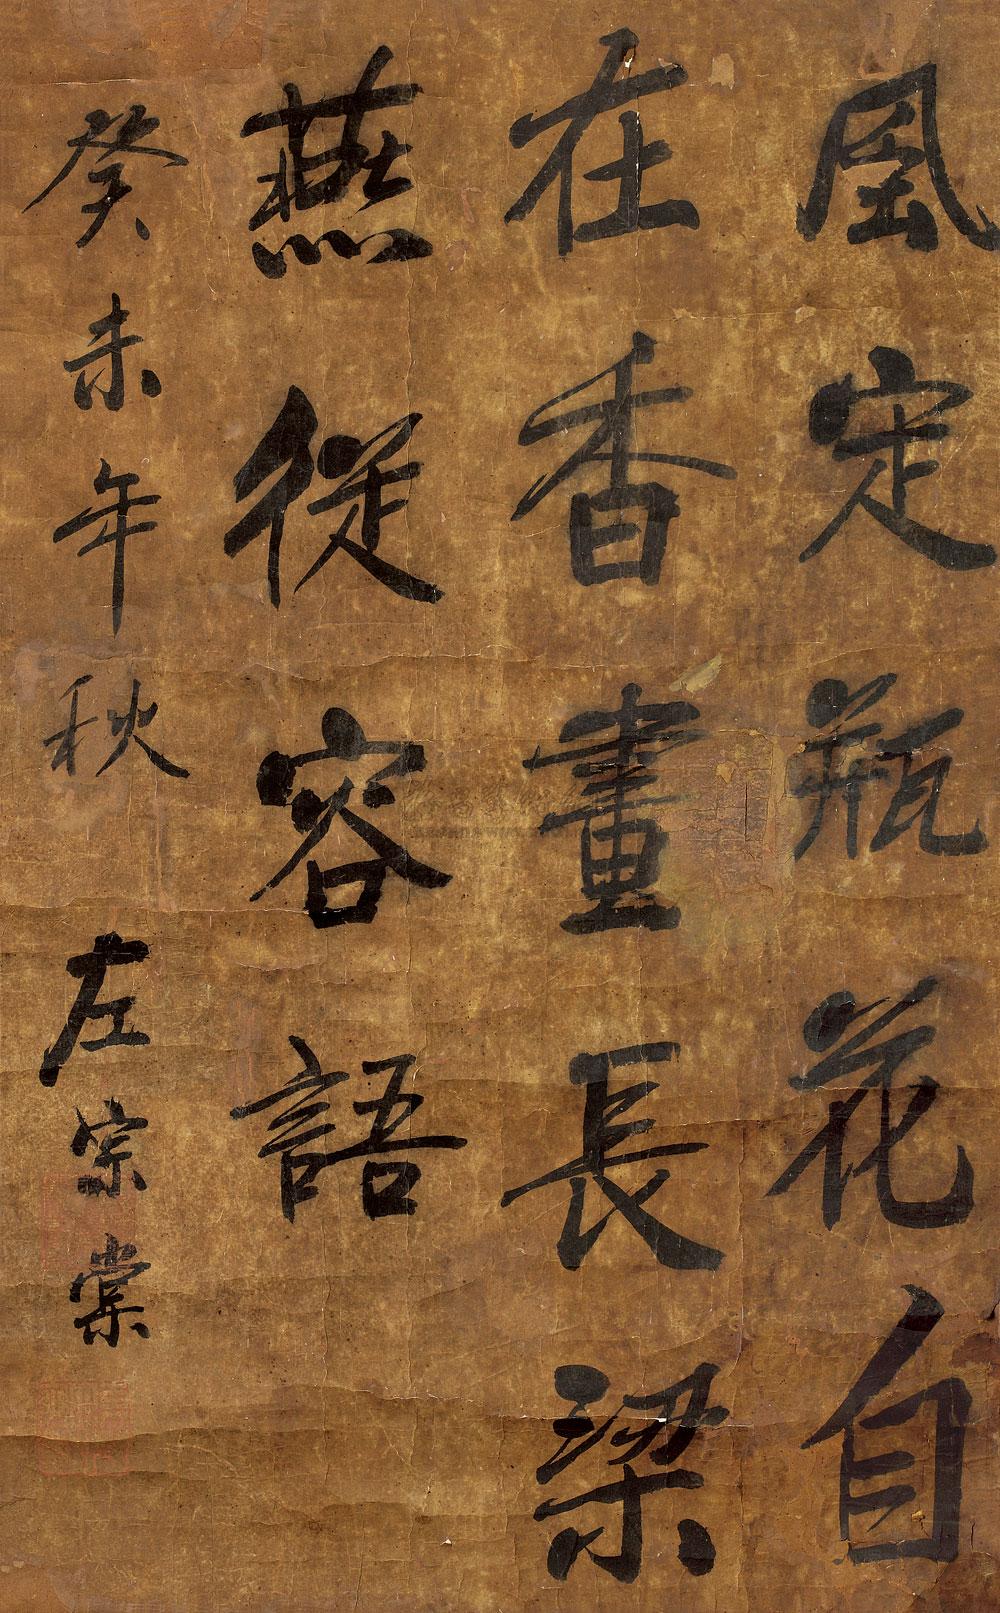 風定瓶花自
在香畫長梁
燕從容語
癸未年秋 左宗棠